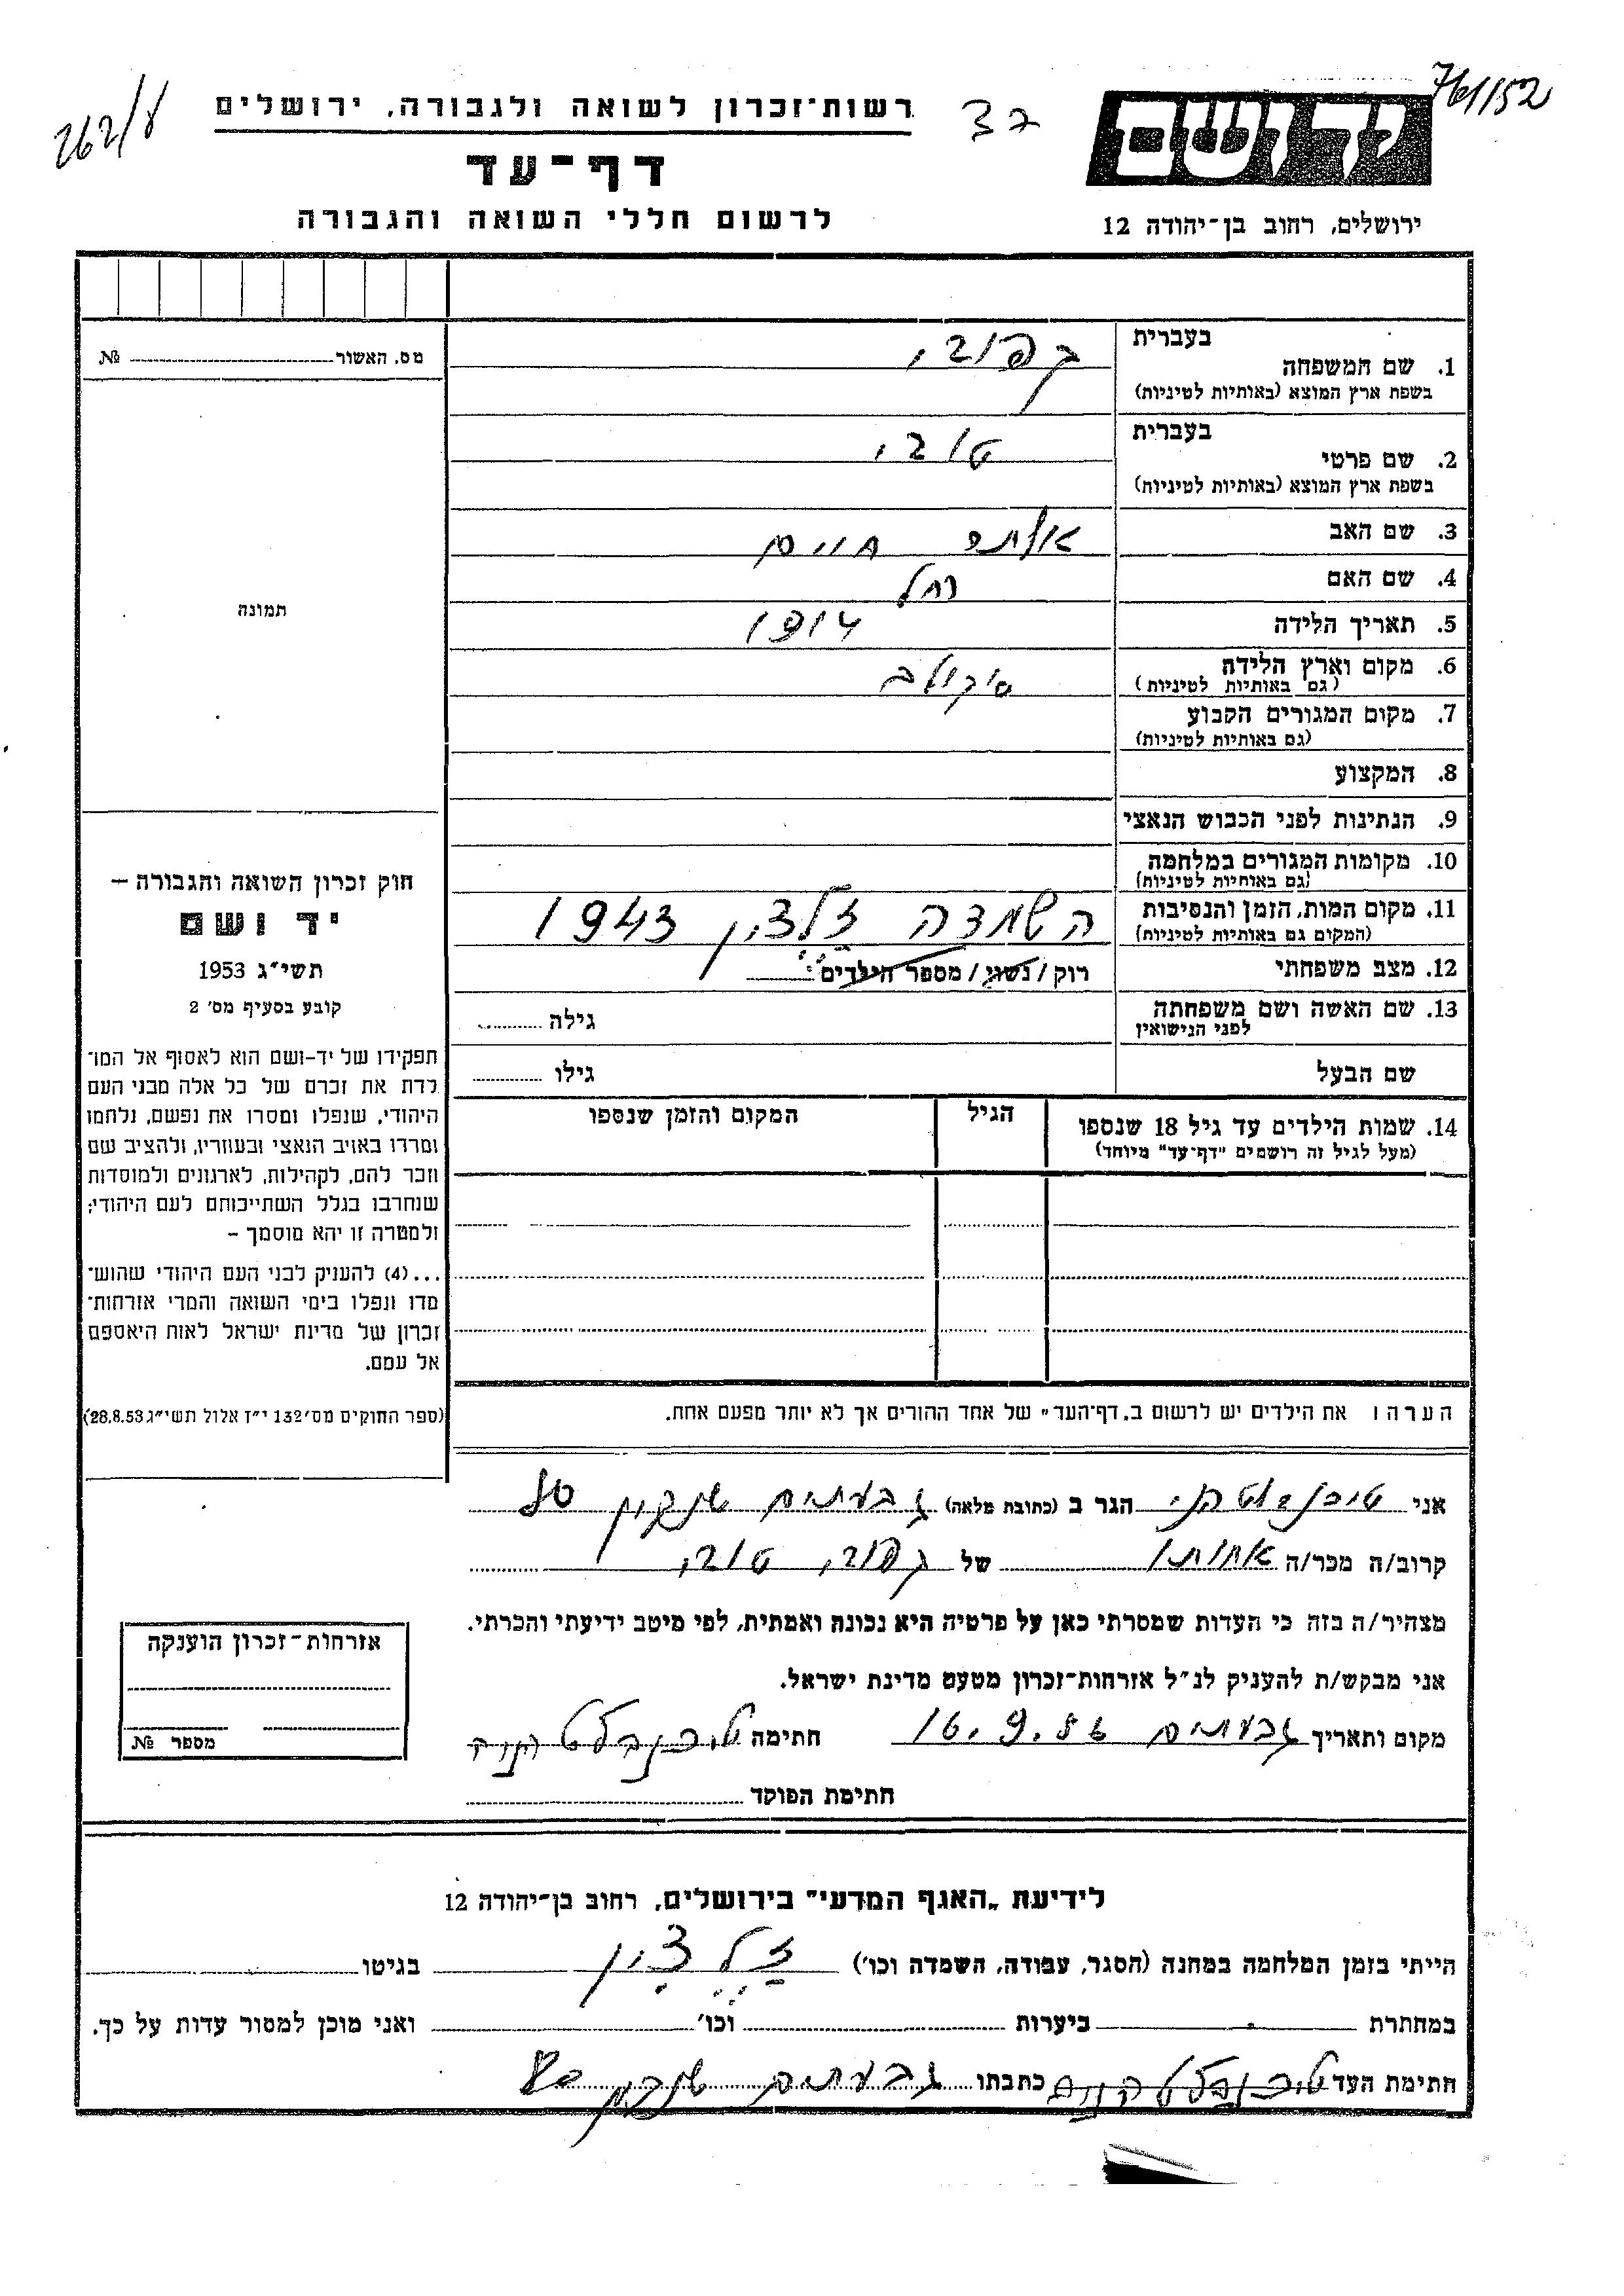 761/152
262/ע
37
רשות־זכרון לשואה ולגבורה, ירושלים
יד ושם
דף־עד
ירושלים, רחוב בן־יהודה 12
לרשום חללי השואה והגבורה
מס. האשור № 
בעברית
1. שם המשפחה
בשפת ארץ המוצא (באותיות לטיניות)
בעברית
טובי
2. שם פרטי
בשפת ארץ המוצא (באותיות לטיניות)
3. שם האב חיים
4. שם האם רחל
תמונה
5. תאריך הלידה 1914
6. מקום וארץ הלידה
(גם באותיות לטיניות)
7. מקום המגורים הקבוע
(גם באותיות לטיניות)
8. המקצוע
9. הנתינות לפני הכבוש הנאצי
10. מקומות המגורים במלחמה
(גם באותיות לטיניות)
11. מקום המות, הזמן והנסיבות השמדה 1943
(המקום גם באותיות לטיניות)
12. מצב משפחתי רוק / נשוי / מספר הילדים
13. שם האשה ושם משפחתה גילה
לפני הנישואין
שם הבעל גילו
חוק זכרון השואה והגבורה –
יד ושם
תשי״ג 1953
קובע בסעיף מס׳ 2
תפקידו של יד-ושם הוא לאסוף אל המו־
לדת את זכרם של כל אלה מבני העם
היהודי, שנפלו ומסרו את נפשם, נלחמו
ומרדו באויב הנאצי ובעוזריו, ולהציב שם
וזכר להם, לקהילות, לארגונים ולמוסדות
שנחרבו בגלל השתייכותם לעם היהודי;
ולמטרה זו יהא מוסמך –
...(4) להעניק לבני העם היהודי שהוש־
מדו ונפלו בימי השואה והמרי אזרחות־
זכרון של מדינת ישראל לאות היאספם
אל עמם.
(ספר החוקים מס׳ 132 י״ז אלול תשי״ג 28.8.53)
14. שמות הילדים עד גיל 18 שנספו הגיל המקום והזמן שנספו
(מעל לגיל זה רושמים "דף־עד" מיוחד)
הערה ו את הילדים יש לרשום ב„דף־העד" של אחד ההורים אך לא יותר מפעם אחת.
אני הגר ב (כתובת מלאה) גבעתים שנקין
קרוב/ה מכר/ה אחותו של טובי
מצהיר/ה בזה כי העדות שמסרתי כאן על פרטיה היא נכונה ואמתית, לפי מיטב ידיעתי והכרתי.
אני מבקש/ת להעניק לנ״ל אזרחות־זכרון מטעם מדינת ישראל.
מקום ותאריך גבעתים חתימה
חתימת הפוקד
אזרחות־זכרון הוענקה
מספר №
לידיעת „האגף המדעי" בירושלים, רחוב בן־יהודה 12
הייתי בזמן המלחמה במחנה (הסגר, עבודה, השמדה וכו׳) בגיטו
במחתרת ביערות וכו׳ ואני מוכן למסור עדות על כך.
חתימת העד כתבתו גבעתים שנקין